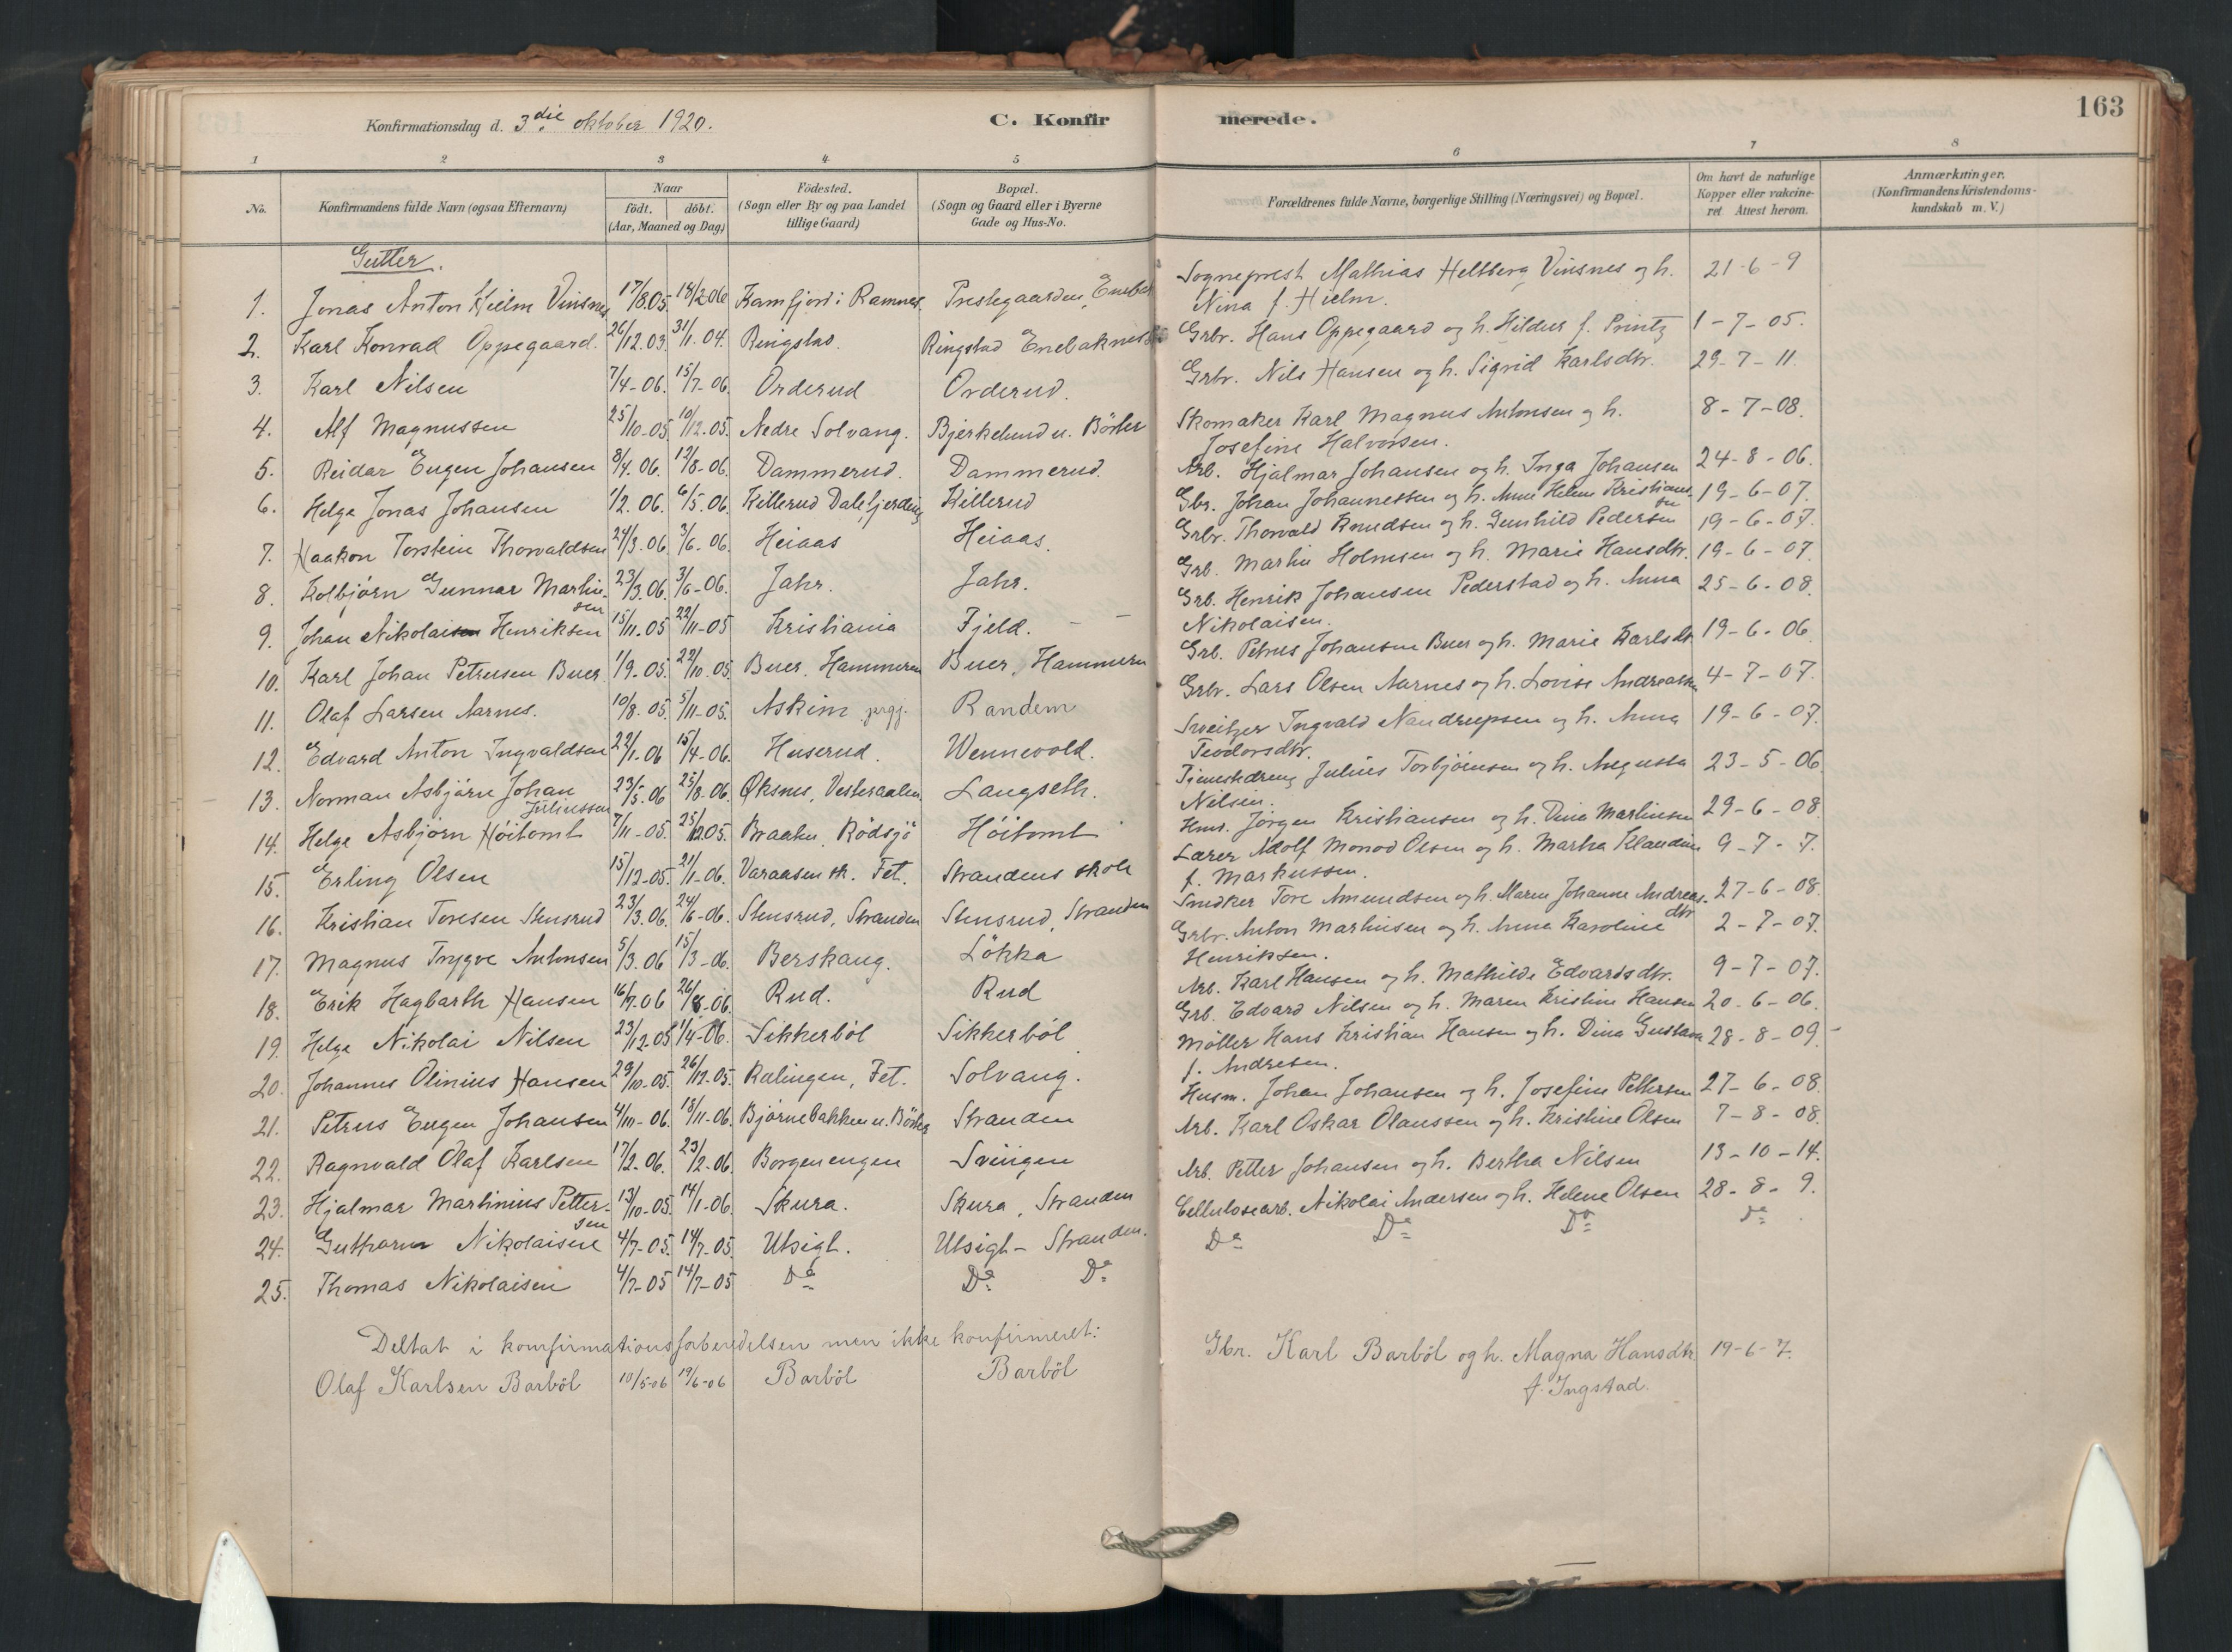 Konfirmationsdag d. 3die oktober 1920. C. Konfirmerede. 163
1 2 3 4 5 6 7 8
No. Konfirmandens fulde Navn (ogsaa Efternavn) Naar födt. döbt. (Aar, Maaned og Dag) Födested. (Sogn eller By og paa Landet tillige Gaard) Bopæl. (Sogn og Gaard eller i Byerne Gade og Hus-No. Forældrenes fulde Navne, borgerlige Stilling (Næringsvei) og Bopæl. Om havt de naturlige Kopper eller vakcineret Attest herom. Anmærkninger. (Konfirmandens Kristendomskundskab m. V.)
Gutter.
1. Jonas Anton Hjelm Vinsnes 17/8.05 18/2 06 Kamfjord i Ramnes Prestegaarden, Enebak Sogneprest Mathias Heltberg Vinsnes og h. Nina f. Hjelm. 21-6-9
2. Karl Konrad Oppegaard. 26/12.03 31/1.04. Ringstad. Ringstad Enebaknes Grbr. Hans Oppegaard og h. Hildur f. Printz 1-7-05.
3. Karl Nilsen 7/4-06. 15/7-06. Orderud Orderud. Grbr. Nils Hansen og h. Sigrid Karlsdtr. 29-7-11.
4. Alf Magnussen 25/10-05 10/12.05. Nedre Solvang. Bjerkelund u. Börter Skomaker Karl Magnus Antonsen og h. Josefine Halvorsen. 8-7-08.
5. Reidar Eugen Johansen 8/4.06. 12/8-06. Dammerud. Dammerud. Arb. Hjalmar Johansen og h. Inga Johansen 24-8-06.
6. Helge Jonas Johansen 1/2.06. 6/5.06. Killerud Dalefjerding Killerud Gbr. Johan Johannessen og h. Anne Helene Kristiansen 19-6-07.
7. Haakon Torstein Thorvaldsen 24/3.06. 3/6.06. Heiaas Heiaas. Grbr. Thorvald Knudsen og h. Gunhild Pedersen 19-6-07.
8. Kolbjørn Gunnar Martinsen 23/3.06. 3/6-06. Jahr. Jahr. Grb. Martin Holmsen og h. Marie Hansdtr. 19-6-07.
9. Johan Nikolaisen Henriksen 15/11.05 22/11-05 Kristiania Fjeld. - - Grb. Henrik Johansen Pederstad og h. Anna Nikolaisen. 25-6-08.
10. Karl Johan Petrusen Buer 1/9-05. 22/10.05. Buer. Hammeren Buer, Hammeren Grb. Petrus Johansen Buer og h. Marie Karlsdtr. 19-6-06.
11. Olaf Larsen Aarnes. 10/8.05. 5/11-05. Askim prgj. Randem Grbr. Lars Olsen Aarnes og h. Lovise Andreassen 4-7-07.
12. Edvard Anton Ingvaldsen 22/1-06 15/4-06. Huserud. Wennevold. Sveitzer Ingvald Nandrupsen og h. Anna Teodorsdtr. 19-6-07
13. Norman Asbjørn Johan Juliussen 23/5.06 25/8-06. Øksnes, Vesteraalen Langseth. Tjenestedreng Julius Torbjörnsen og h. Augusta Nilsen. 23-5-06.
14. Helge Asbjørn Höitomt 7/11-05. 25/12.05. Braaten, Rödsjö Höitomt Hms. Jørgen Kristiansen og h. Dina Martinsen 29-6-08.
15. Erling Olsen 15/12-05. 21/1-06. Varaasen sk. Fet. Strandens skole Lærer Adolf Monod Olsen og h. Martha Klaudine f. Markussen. 9-7-7.
16. Kristian Toresen Stensrud 23/3.06. 24/6-06. Stensrud, Stranden Stensrud, Stranden Snedker Tore Amundsen og h. Maren Johanne Andreasdtr 27-6-08.
17. Magnus Trygve Antonsen 5/3.06 15/3-06. Berskaug. Lökka Grbr. Anton Martinsen og h. Anna Karoline Henriksen. 2-7-07.
18. Erik Hagbarth Hansen 16/7.06 26/8-06. Rud. Rud Arb. Karl Hansen og h. Mathilde Edvardsdtr. 9-7-07.
19. Helge Nikolai Nilsen 23/12-05 1/4-06. Sikkerböl Sikkerböl Grb. Edvard Nilsen og h. Maren Kristine Hansen 20-6-06.
20. Johannes Olinius Hansen 29/10-05. 26/12-05. Rælingen, Fet. Solvang. Möller Hans Kristian Hansen og h. Dina Gustava f. Andresen. 28-8-09.
21. Petrus Eugen Johansen 4/10-06. 18/11-06. Bjørnebakken u. Börter Stranden Husm. Johan Johansen og h. Josefine Pettersen 27-6-08.
22. Ragnvald Olaf Karlsen 17/2-06. 23/2-06. Borgenengen Svingen Arb. Karl Oskar Olaussen og h. Kristine Olsen 7-8-08.
23. Hjalmar Martinius Pettersen 13/10-05. 14/1-06. Skura. Skura, Stranden Arb. Petter Johansen og h. Bertha Nilsen 13-10-14.
24. Guttorm Nikolaisen 4/7-05. 14/7-05. Utsigt. Utsigt- Stranden. Cellulosearb. Nikolai Andersen og h. Helene Olsen 28-8-9.
25. Thomas Nikolaisen 4/7-05 14/7-05 Do Do Do Do Do Do Do
Deltat i konfirmationsforberedelsen men ikke konfirmeret:
Olaf Karlsen Barböl 10/5-06 19/6-06 Barböl Barböl Gbr. Karl Barböl og h. Magna Hansdtr. f. Ingstad. 19-6-7.